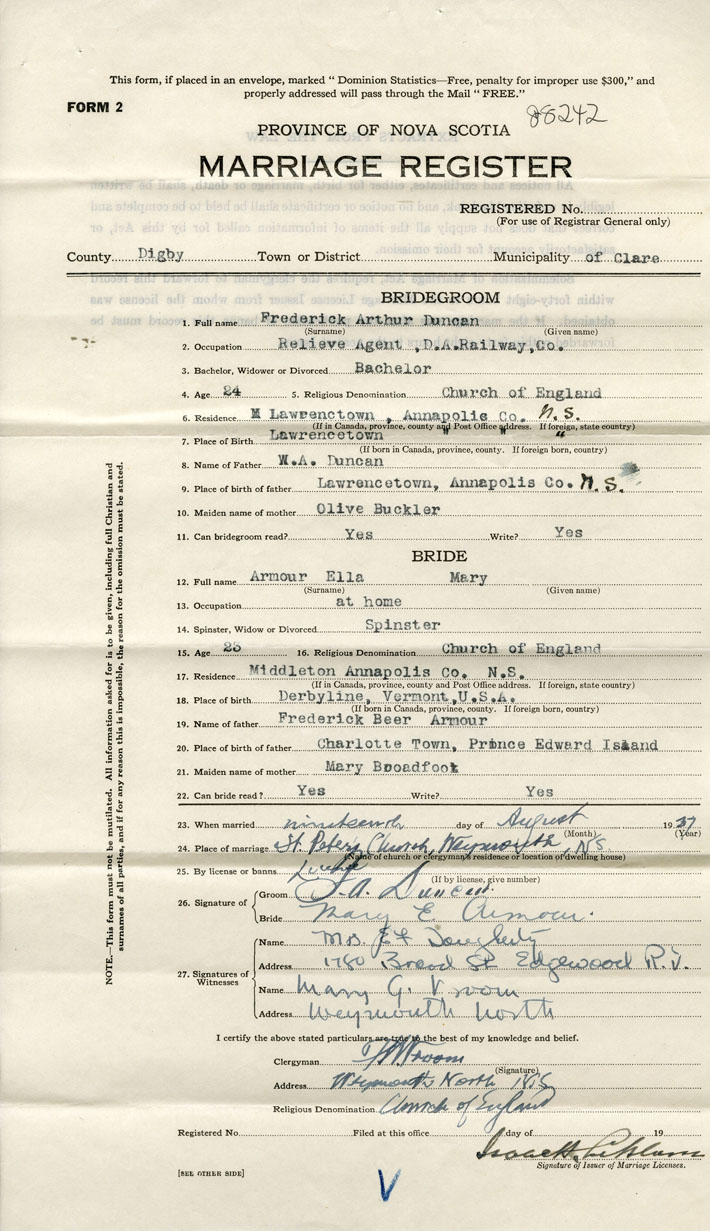 This form, if placed in an envelope, marked " Dominion Statistics—Free, penalty for improper use $300," and
properly addressed will pass through the Mail " FREE."
FORM 2
88242
PROVINCE OF NOVA SCOTIA
MARRIAGE REGISTER
REGISTERED No.
(For use of Registrar General only)
County Digby Town or District Municipality of Clare
BRIDEGROOM
1. Full name Frederick Arthur Duncan
(Surname) (Given name)
2. Occupation Relieve Agent ,D.A.Railway,Co.
3. Bachelor, Widower or Divorced Bachelor
4. Age 24 5. Religious Denomination Church of England
6. Residence M Lawrenctown , Annapolis Co. N.S.
(If in Canada, province, county and Post Office address. If foreign, state country)
7. Place of Birth Lawrencetown " " "
(If born in Canada, province, county. If foreign born, country)
8. Name of Father W.A. Duncan
9. Place of birth of father Lawrencetown, Annapolis Co. N.S.
10. Maiden name of mother Olive Buckler
11. Can bridegroom read? Yes Write? Yes
BRIDE
12. Full name Armour Ella Mary
(Surname) (Given name)
13. Occupation at home
14. Spinster, Widow or Divorced Spinster
15. Age 25 16. Religious Denomination Church of England
17. Residence Middleton Annapolis Co. N.S.
(If in Canada, province, county and Post Office address. If foreign, state country)
18. Place of birth Derbyline, Vermont,U.S.A.
(If born in Canada, province, county. If foreign born, country)
19. Name of father Frederick Beer Armour
20. Place of birth of father Charlotte Town, Prince Edward Island
21. Maiden name of mother Mary Broadfoot
22. Can bride read? Yes Write? Yes
23. When married nineteenth day of August 1937
(Month) (Year)
24. Place of marriage St. Peter's Church, Weymouth, N.S.
(Name of church or clergyman's residence or location of dwelling house)
25. By license or banns
(If by license, give number)
26. Signature of
Groom F.A. Duncan.
Bride Mary E. Armour.
27. Signatures of Witnesses
Name Mrs. Dougherty
Address 1780 Broad St Edgewood R.I.
Name Mary G. Vroom
Address Weymouth North
I certify the above stated particulars are true to the best of my knowledge and belief.
Clergyman Vroom
(Signature)
Address Weymouth North N.S.
Religious Denomination Church of England
Registered No. Filed at this office day of 19
Signature of Issuer of Marriage Licenses.
[SEE OTHER SIDE]
V
NOTE.—This form must not be mutilated. All information asked for is to be given, including full Christian and
surnames of all parties, and if for any reason this is impossible, the reason for the omission must be stated.